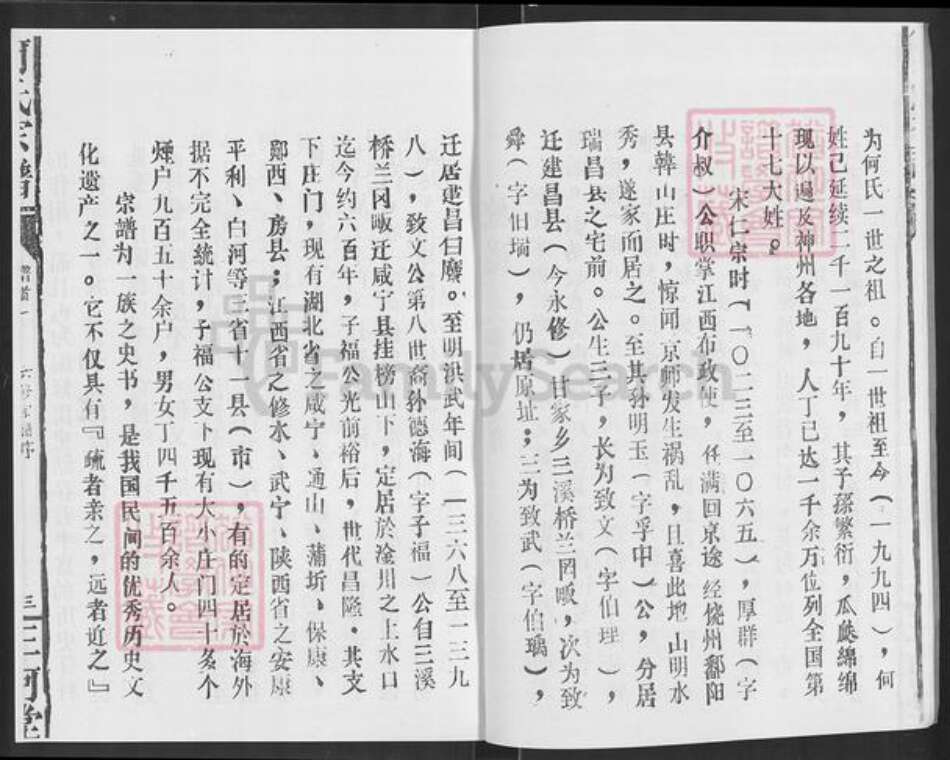 为何氏一世之祖。自一世祖至今（一九九四），何
姓已延续二千一百九十年，其子孫繁衍，瓜瓞綿綿
现以遍及神州各地，人丁已达一千余万位列全国第
十七大姓。
宋仁宗时（一〇二三至一〇六五），厚群（字
介叔）公職掌江西布政使，任满回京途经饶州鄱阳
县韓山庄时，惊闻京师发生祸乱，且喜此地山明水
秀，遂家而居之。至其孙明玉（字孚中）公，分居
瑞昌县之宅前。公生三子，长为致文（字伯理），
迁建昌县（今永修）甘家乡三溪桥兰冈畈，次为致
舜（字旧瑞），仍居原址；三为致武（字伯瑀），
迁居建昌曰廢。至明洪武年间（一三六八至一三九
八），致文公第八世裔孙德海（字子福）公自三溪
桥兰冈畈迁咸宁县挂榜山下，定居於淦川之上水口
迄今约六百年，子福公光前裕后，世代昌隆。其支
下庄门，现有湖北省之咸宁、通山、蒲圻、保康、
鄖西、房县；江西省之修水、武宁、陕西省之安康
平利、白河等三省十一县（市），有的定居於海外
据不完全统计，子福公支下现有大小庄门四十多个
煙户九百五十余户，男女丁四千五百余人。
宗譜为一族之史书，是我国民间的优秀历史文
化遗产之一。它不仅具有『疏者亲之，远者近之』
何氏宗譜
卷首一
三
三何堂
FamilySearch